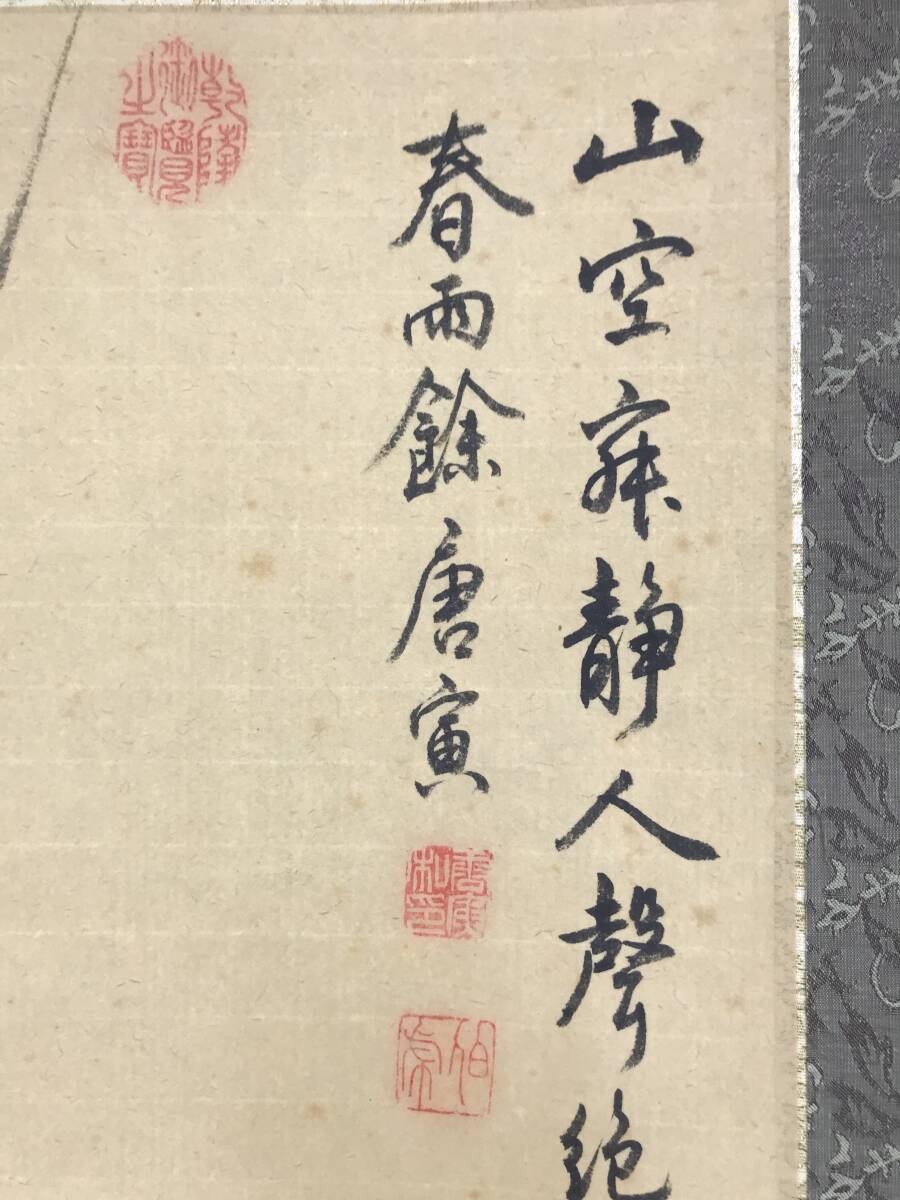 山空寂靜人聲絕
春雨餘唐寅
乾隆御覽之寶
唐寅私印
伯虎